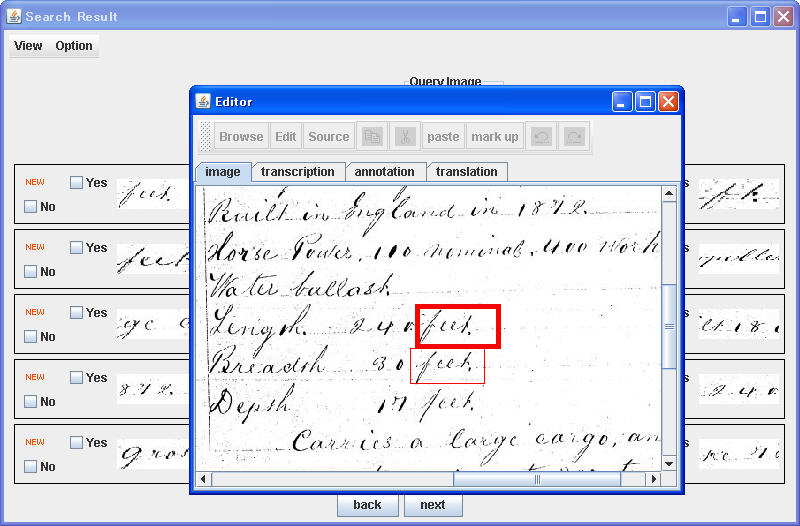 Search Result
View Option
Query Image
Editor
Browse Edit Source paste mark up
image transcription annotation translation
Built in England in 1872.
Horse Power, 110 nominal, 400 Work
Water ballast.
Length. 240 feet.
Breadth 30 feet.
Depth 17 feet.
Carries a large cargo, an
NEW Yes feet.
No
NEW Yes feet
No
NEW Yes ge c
No
NEW Yes 872.
No
NEW Yes gros
No
s ft.
s
s ilt 18
s 240
s
back next